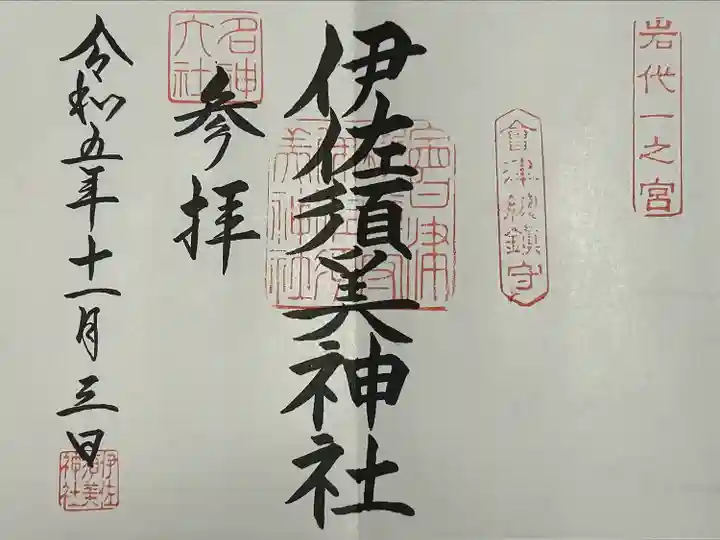 岩代一之宮
會津総鎮守
伊佐須美神社
名神
大社
参拝
令和五年十一月三日
伊佐
須美
神社